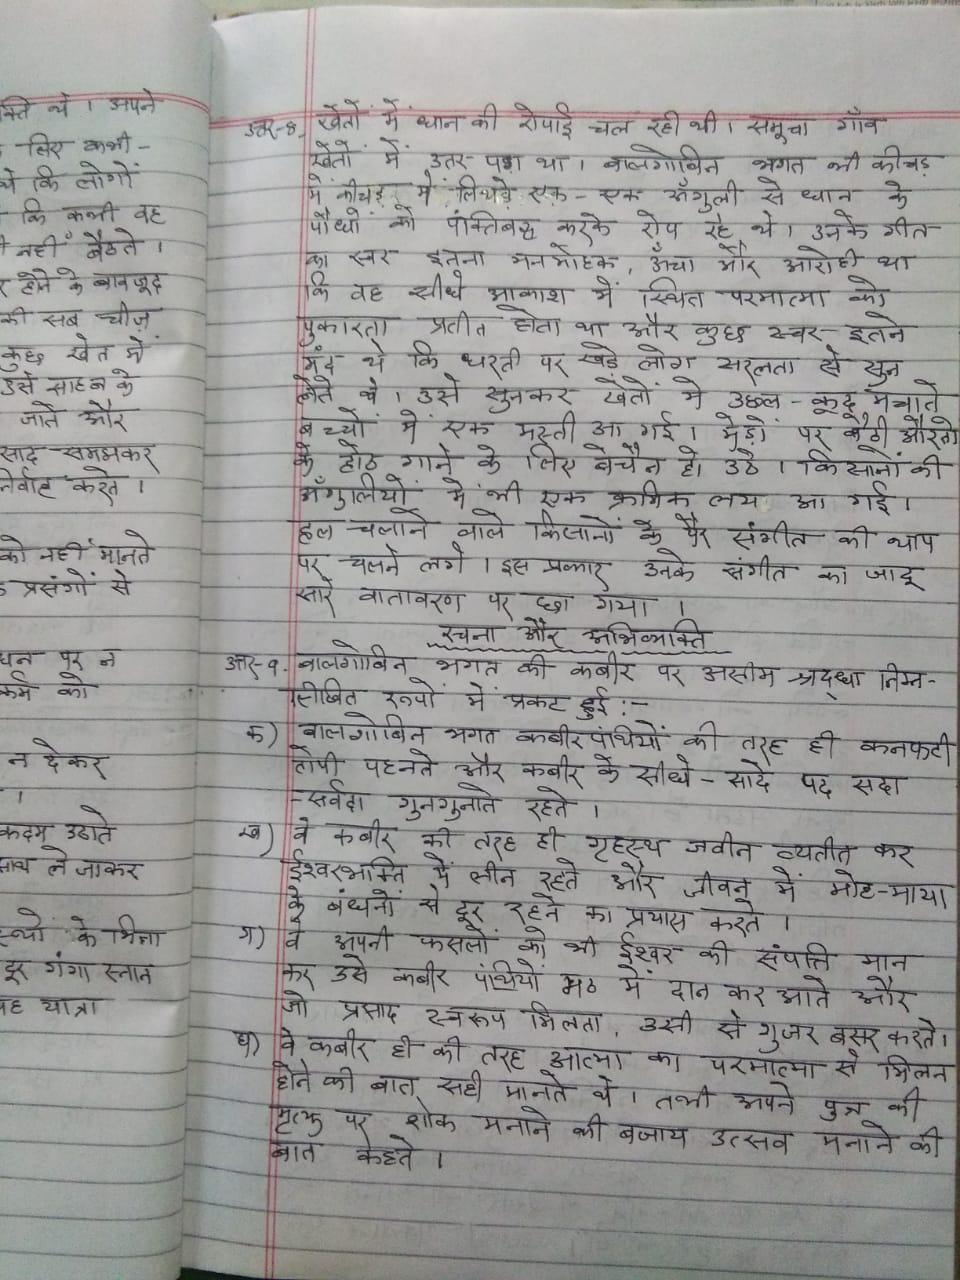 क्ति थे । अपने
लिए कभी -
थे कि लोगों
कि कभी वह
नहीं बैठते ।
होने के बावजूद
की सब चीज़
कुछ खेत में
उसे साहब के
जाते और
प्रसाद समझकर
निर्वाह करते ।
को नहीं मानते
प्रसंगों से
पर न
कर्म को
न देकर
।
कदम उठाते
साथ ले जाकर
के भिन्ना
दूर गंगा स्नान
यह यात्रा
उत्तर-8. खेतों में धान की रोपाई चल रही थी । समूचा गाँव
खेतों में उतर पड़ा था । बालगोबिन भगत भी कीचड़
में कीचड़ में लिथड़े एक - एक अँगुली से धान के
पौधों को पंक्तिबद्ध करके रोप रहे थे । उनके गीत
का स्वर इतना मनमोहक , ऊँचा और आरोही था
कि वह सीधे आकाश में स्थित परमात्मा को
पुकारता प्रतीत होता था और कुछ स्वर इतने
मंद थे कि धरती पर खड़े लोग सरलता से सुन
लेते थे । उसे सुनकर खेतों में उछल - कूद मचाते
बच्चों में एक मस्ती आ गई । मेंड़ों पर बैठी औरतों
के होंठ गाने के लिए बेचैन हो उठे । किसानों की
अँगुलियों में भी एक क्रमिक लय आ गई ।
हल चलाने वाले किसानों के पैर संगीत की थाप
पर चलने लगे । इस प्रकार उनके संगीत का जादू
सारे वातावरण पर छा गया ।
रचना और अभिव्यक्ति
उत्तर-9. बालगोबिन भगत की कबीर पर असीम श्रद्धा निम्न-
लिखित रूपों में प्रकट हुई :-
क) बालगोबिन भगत कबीरपंथियों की तरह ही कनफटी
टोपी पहनते और कबीर के सीधे - सादे पद सदा
-सर्वदा गुनगुनाते रहते ।
ख) वे कबीर की तरह ही गृहस्थ जवीन व्यतीत कर
ईश्वरभक्ति में लीन रहते और जीवन में मोह-माया
के बंधनों से दूर रहने का प्रयास करते ।
ग) वे अपनी फसलों को भी ईश्वर की संपत्ति मान
कर उसे कबीर पंथियों मठ में दान कर आते और
जो प्रसाद स्वरूप मिलता , उसी से गुजर बसर करते।
घ) वे कबीर ही की तरह आत्मा का परमात्मा से मिलन
होने की बात सही मानते थे । तभी अपने पुत्र की
मृत्यु पर शोक मनाने की बजाय उत्सव मनाने की
बात कहते ।